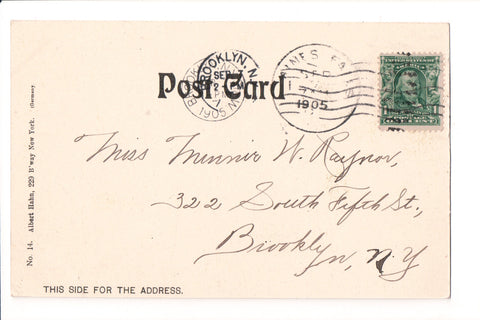 Post Card
BROOKLYN, N.Y.
SEP 7
1905
1905
Miss Minnie W. Raynor,
322 South Fifth St.,
Brooklyn, N.Y
No. 14. Albert Hahn, 229 B'way New York. Germany
THIS SIDE FOR THE ADDRESS.